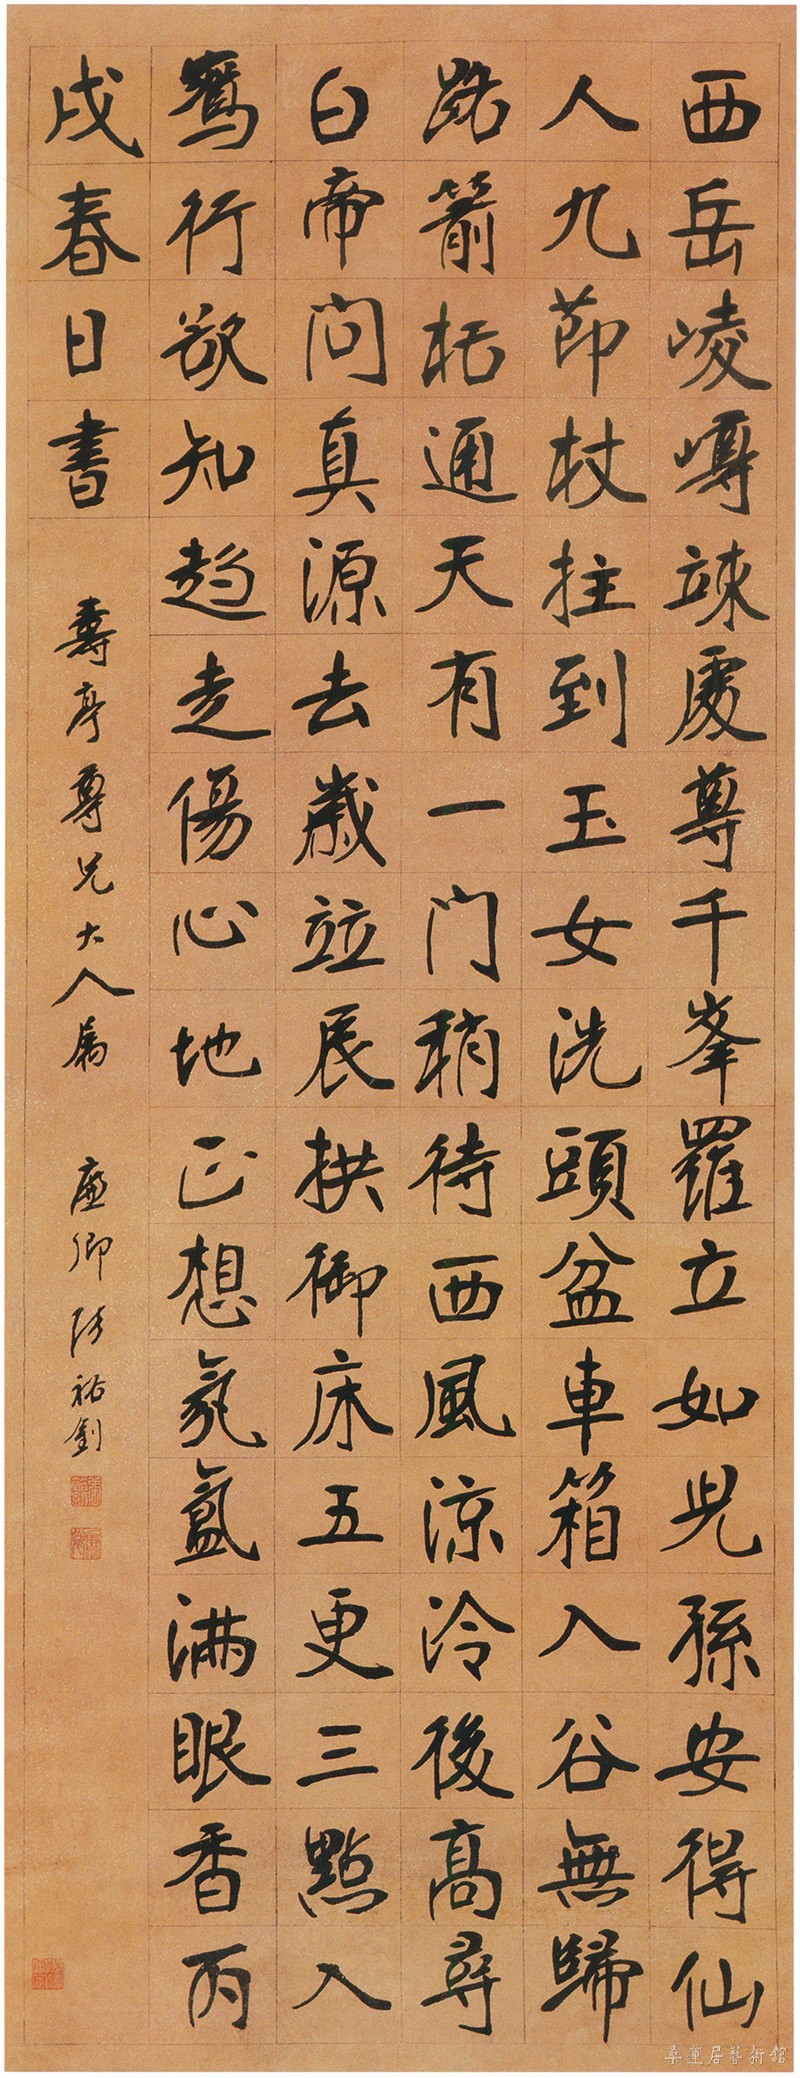 西岳崚嶒竦處尊千峯羅立如兒孫安得仙
人九節杖拄到玉女洗頭盆車箱入谷無歸
路箭栝通天有一門稍待西風涼冷後高尋
白帝問真源去歲竝辰拱御床五更三點入
鴛行欲知趨走傷心地正想氛氳滿眼香丙
戌春日書
壽亭尊兄大人屬 廉卿張裕釗
桑蓮居藝術館